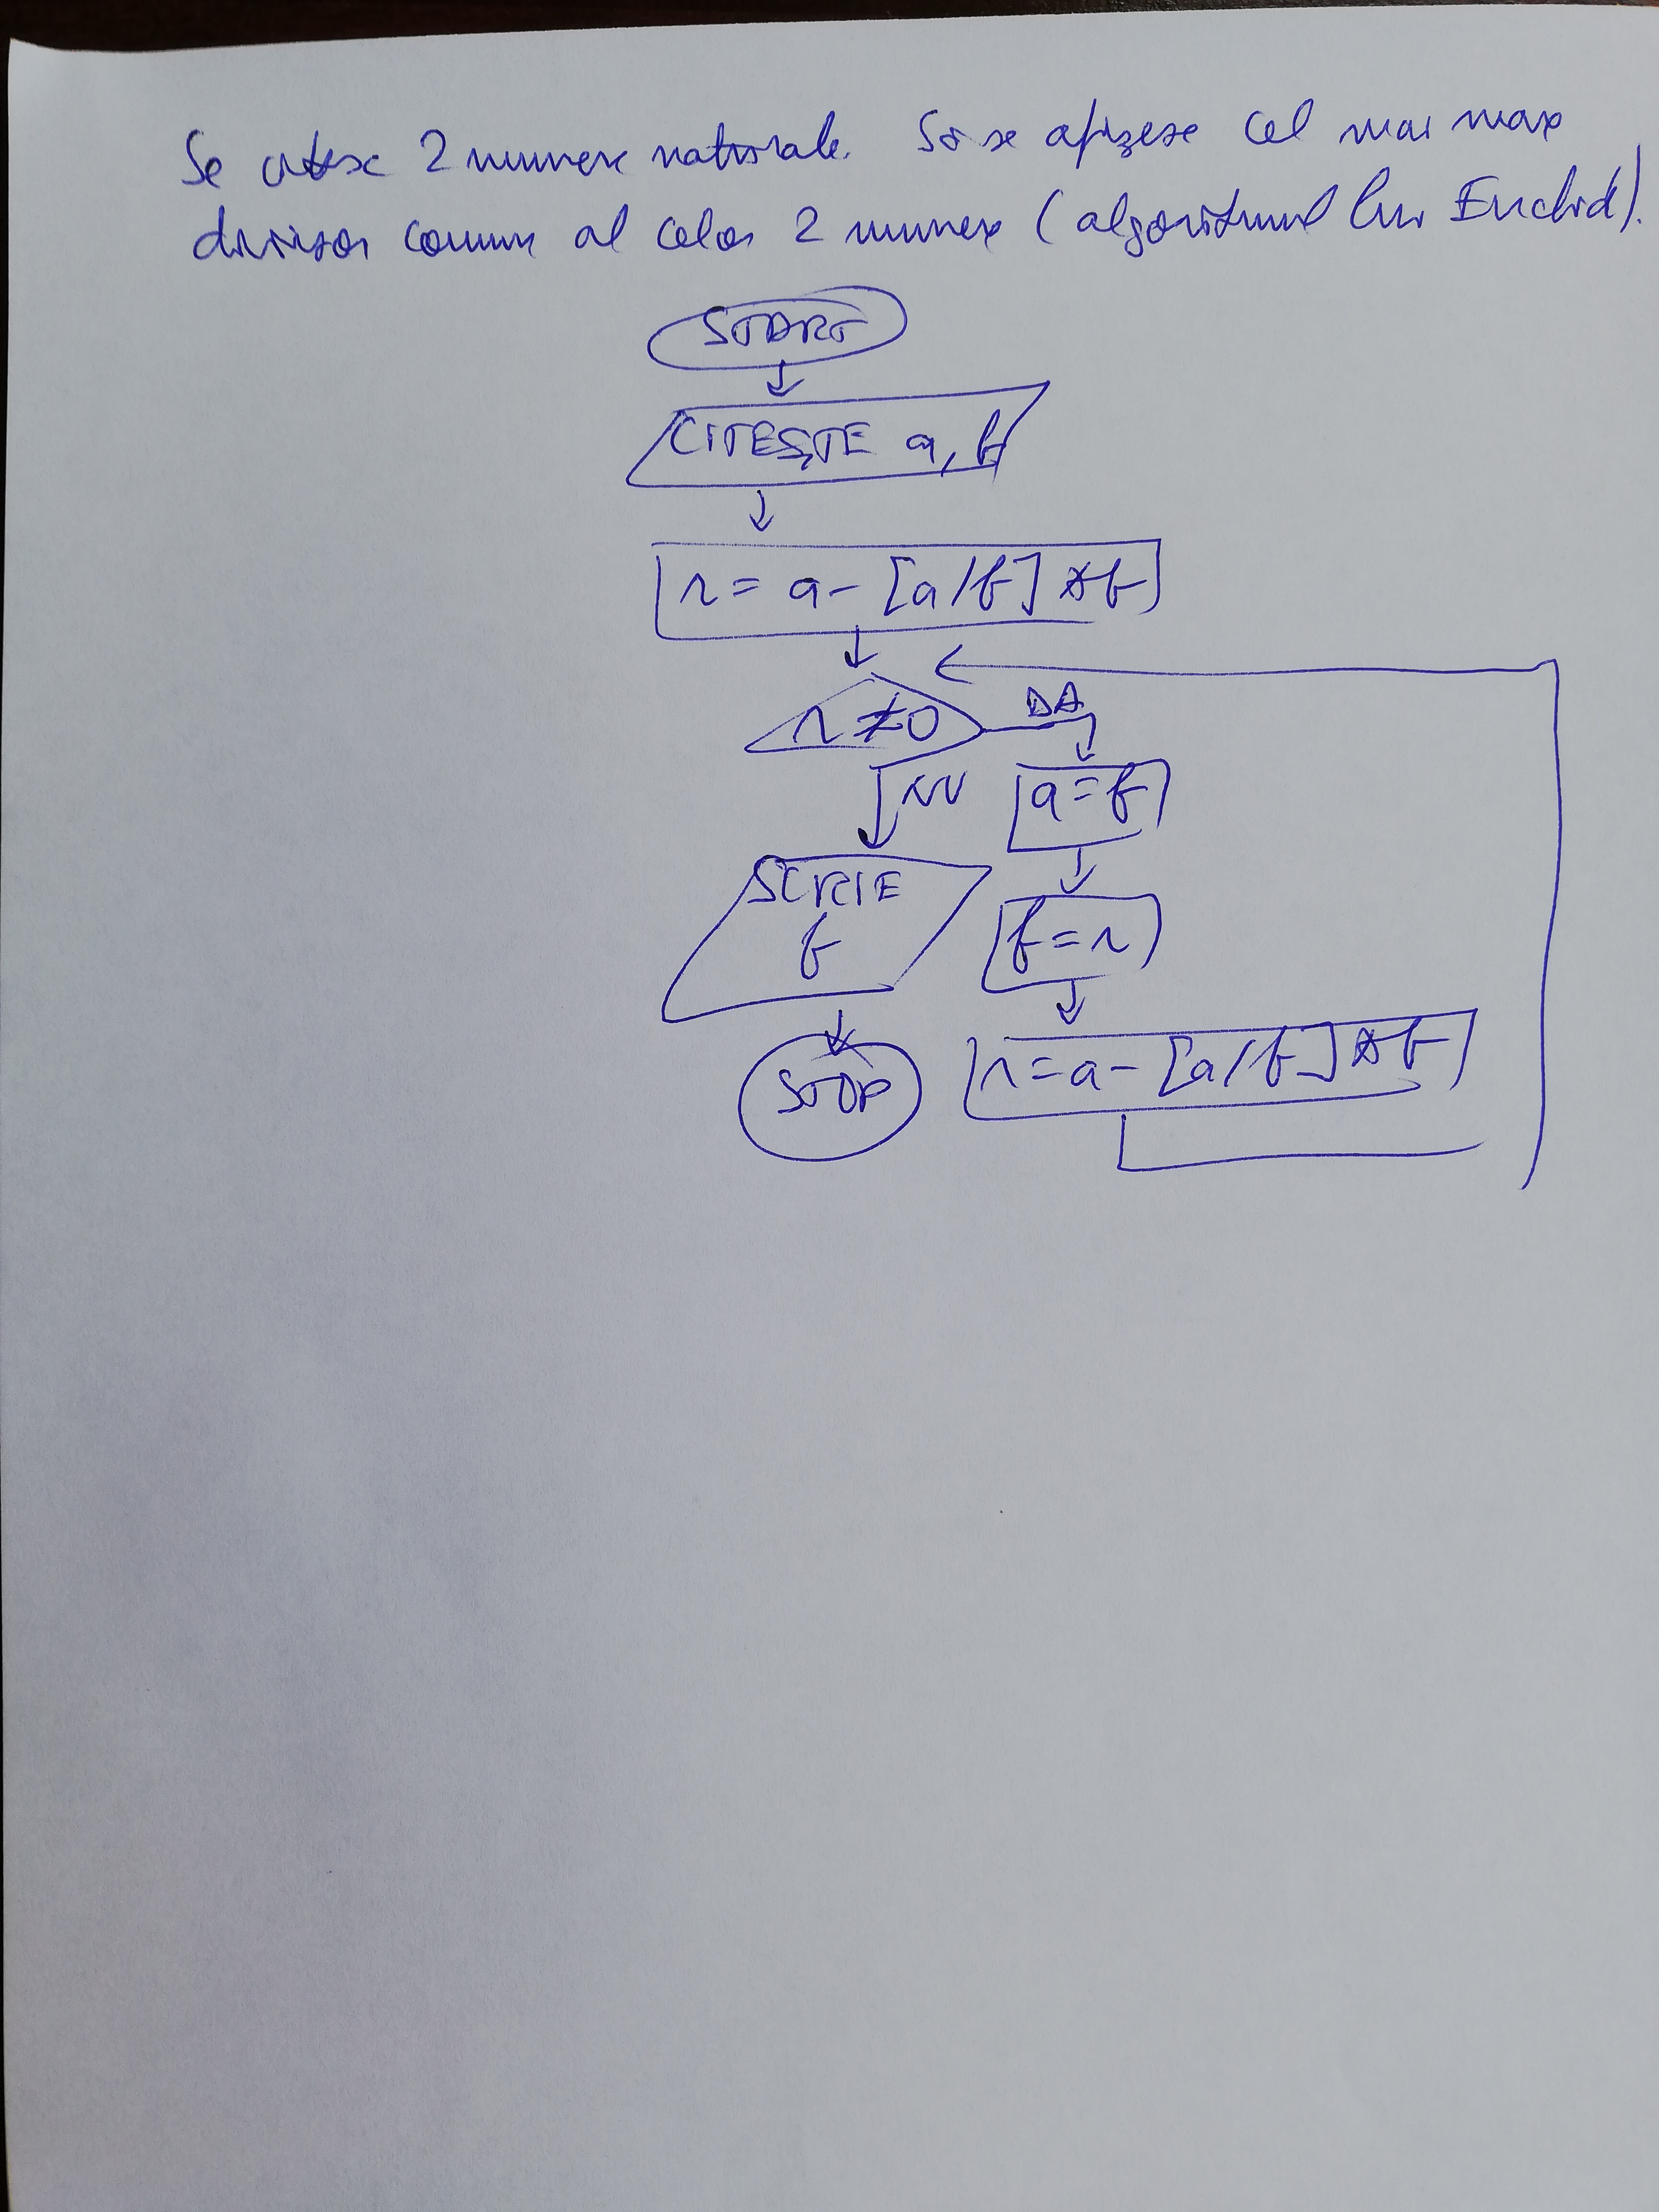 Se citesc 2 numere naturale. Să se afișeze cel mai mare
divizor comun al celor 2 numere (algoritmul lui Euclid).
START
CITEȘTE a, b
r = a - [a/b] * b
r ≠ 0
DA
NU
a = b
SCRIE
b
b = r
r = a - [a/b] * b
STOP